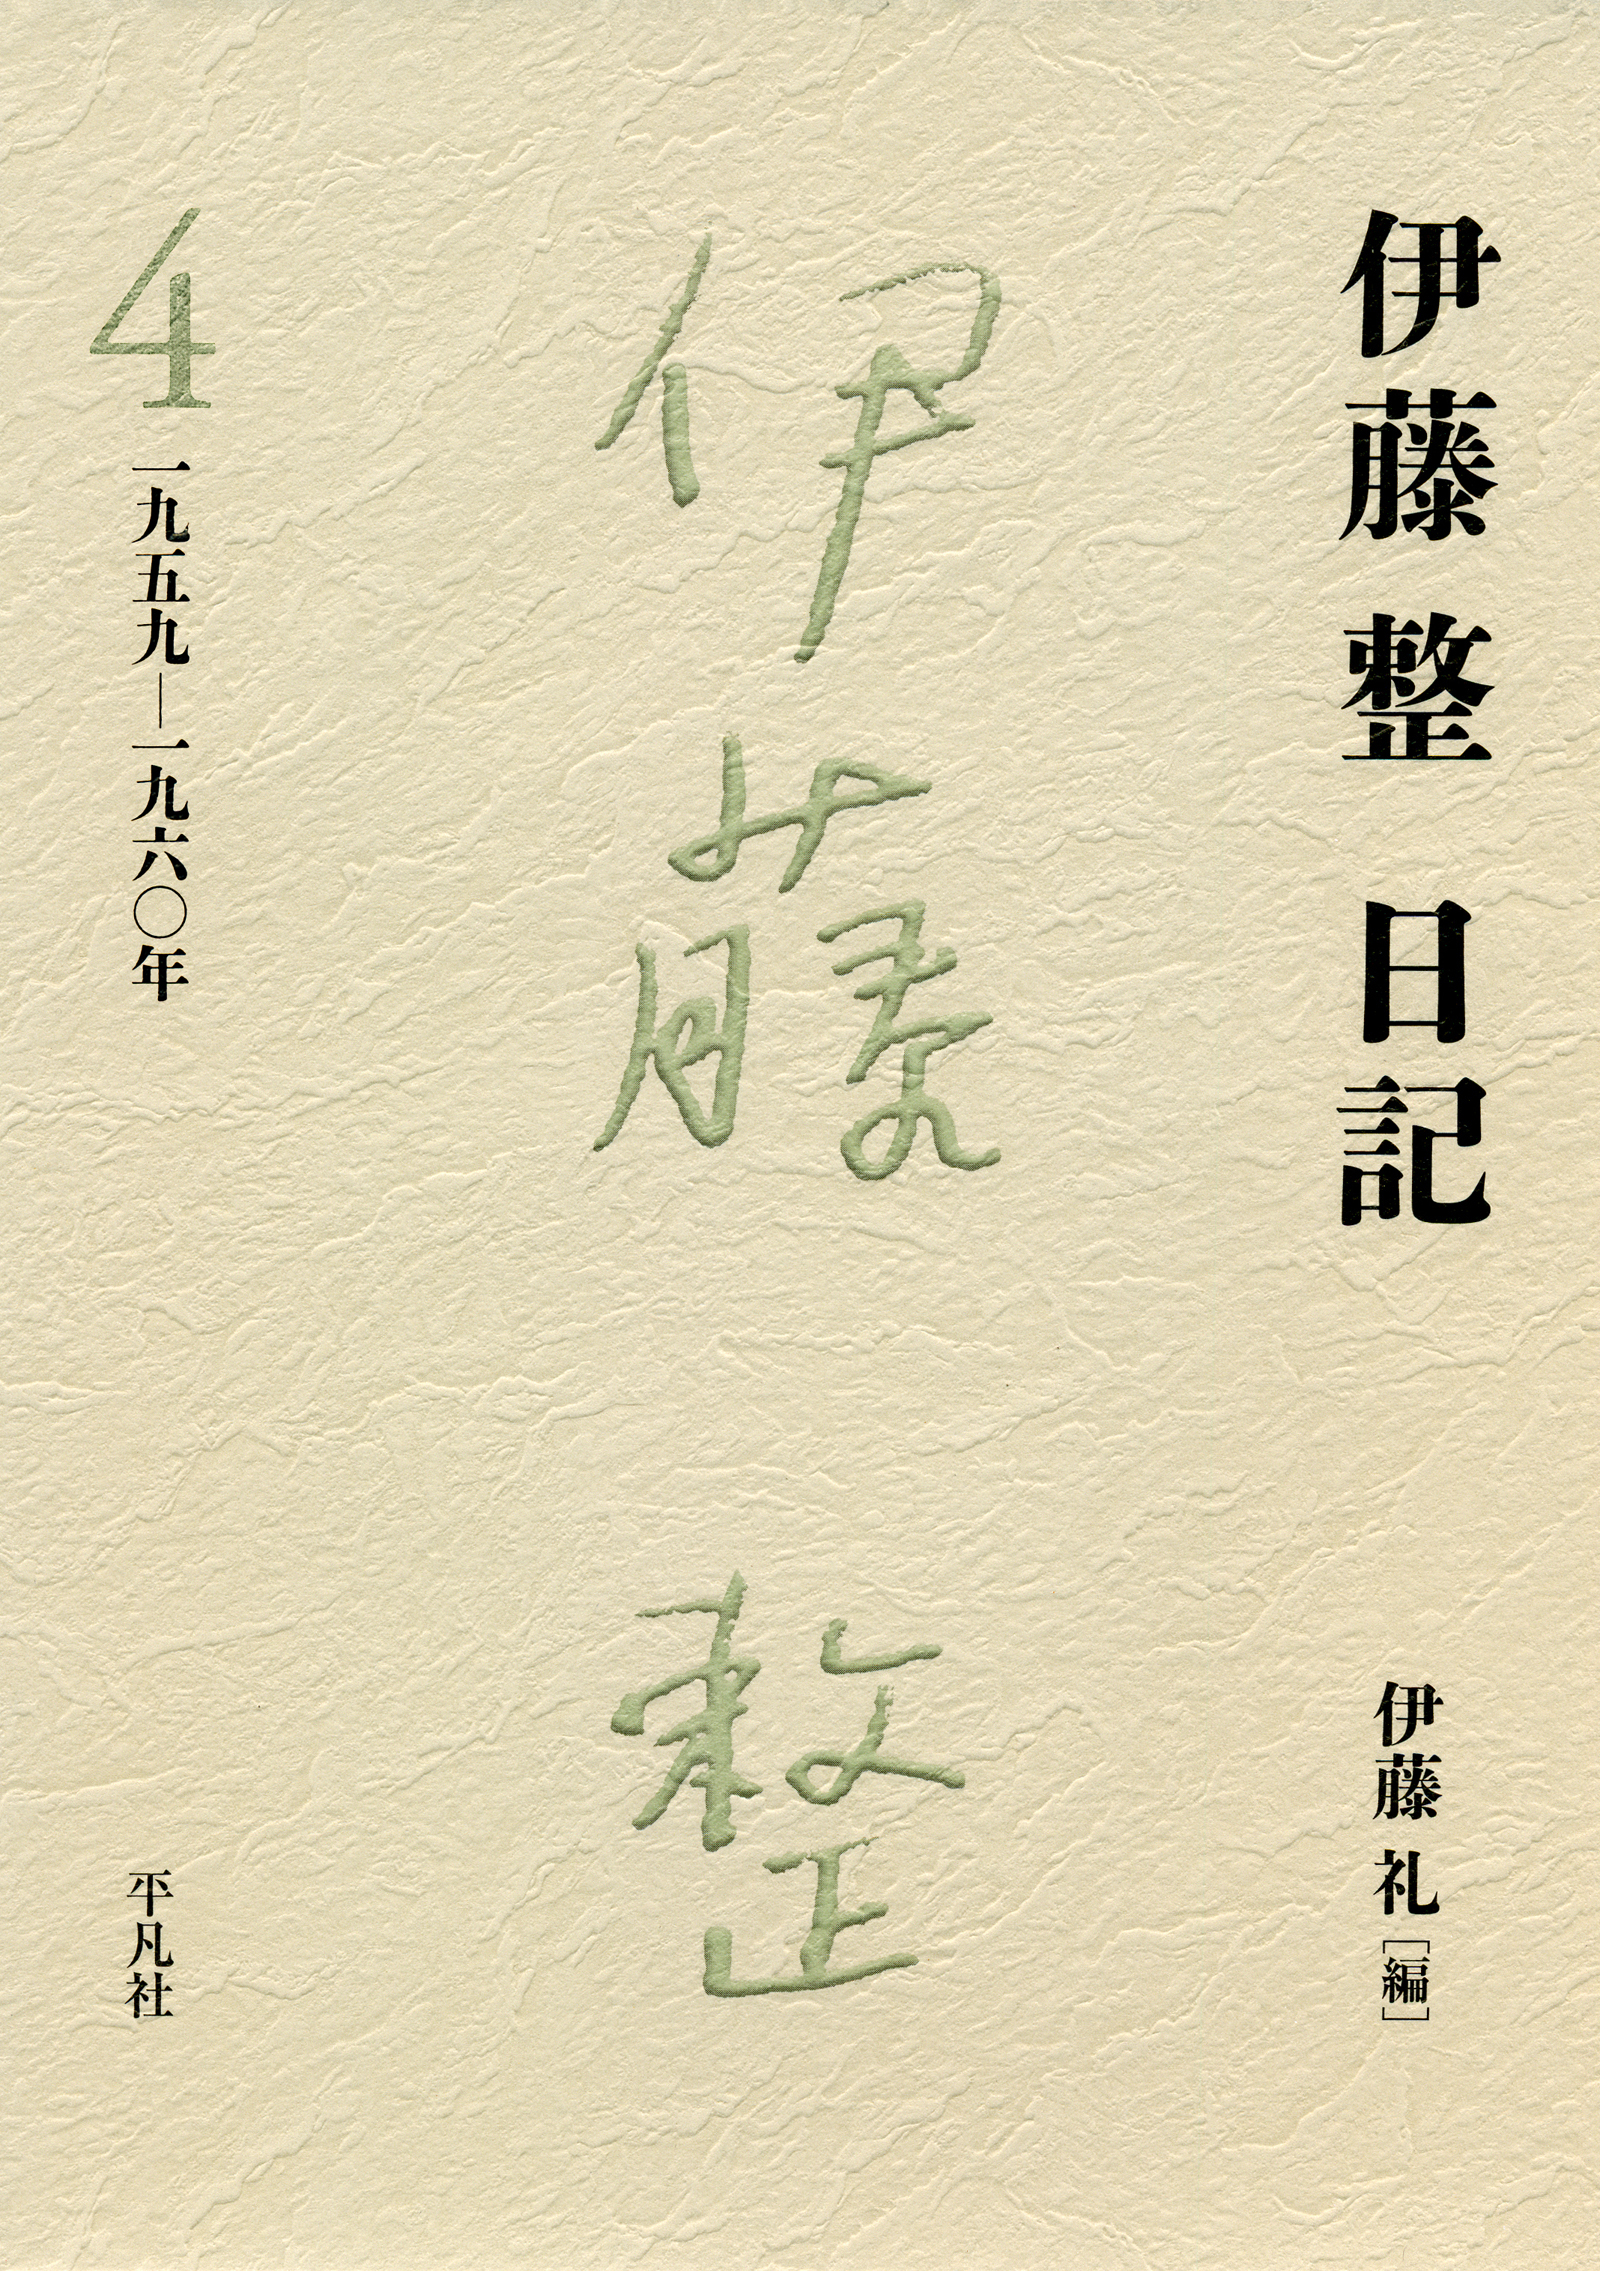 伊藤 整 日記
伊藤 礼 [編]
伊藤 整
4 一九五九―一九六〇年
平凡社